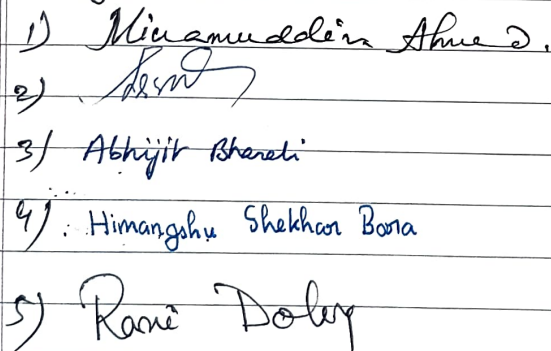 1) Minamuddin Ahmed.
2)
3) Abhijit Bharali
4) Himangshu Shekhar Bora
5) Rani Doley